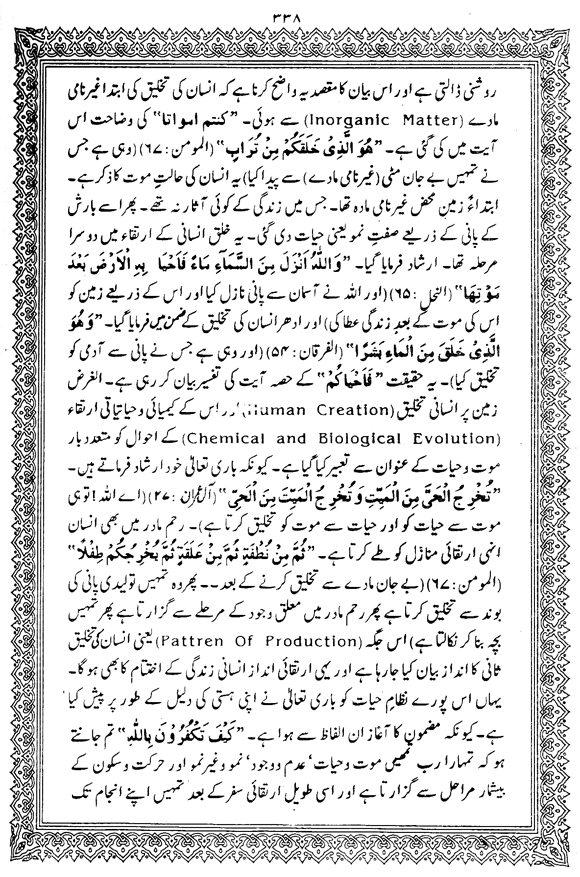 ۳۳۸
روشنی ڈالتی ہے اور اس بیان کا مقصد یہ واضح کرنا ہے کہ انسان کی تخلیق کی ابتدا غیر نامی
مادے (Inorganic Matter) سے ہوئی۔ "کنتم امواتا" کی وضاحت اس
آیت میں کی گئی ہے۔ "هُوَ الَّذِیْ خَلَقَکُمْ مِنْ تُرَابٍ" (المومن : ۶۷) (وہی ہے جس
نے تمہیں بے جان مٹی (غیر نامی مادے) سے پیدا کیا) یہ انسان کی حالتِ موت کا ذکر ہے۔
ابتداءً زمین محض غیر نامی مادہ تھا۔ جس میں زندگی کے کوئی آثار نہ تھے۔ پھر اسے بارش
کے پانی کے ذریعے صفتِ نمو یعنی حیات دی گئی۔ یہ خلق انسانی کے ارتقاء میں دوسرا
مرحلہ تھا۔ ارشاد فرمایا گیا۔ "وَاللّٰهُ اَنْزَلَ مِنَ السَّمَآءِ مَاءً فَاَحْیَا بِهِ الْاَرْضَ بَعْدَ
مَوْتِهَا" (النحل : ۶۵) (اور اللہ نے آسمان سے پانی نازل کیا اور اس کے ذریعے زمین کو
اس کی موت کے بعد زندگی عطا کی) اور ادھر انسان کی تخلیق کے ضمن میں فرمایا گیا۔ "وَهُوَ
الَّذِیْ خَلَقَ مِنَ الْمَاءِ بَشَرًا" (الفرقان : ۵۴) (اور وہی ہے جس نے پانی سے آدمی کو
تخلیق کیا)۔ یہ حقیقت "فَاَحْیَاکُمْ" کے حصہ آیت کی تفسیر بیان کر رہی ہے۔ الغرض
زمین پر انسانی تخلیق (Human Creation) اور اس کے کیمیائی و حیاتیاتی ارتقاء
(Chemical and Biological Evolution) کے احوال کو متعدد بار
موت و حیات کے عنوان سے تعبیر کیا گیا ہے۔ کیونکہ باری تعالٰی خود ارشاد فرماتے ہیں۔
"تُخْرِجُ الْحَیَّ مِنَ الْمَیِّتِ وَ تُخْرِجُ الْمَیِّتَ مِنَ الْحَیِّ" (آل عمران : ۲۷) (اے اللہ ! تو ہی
موت سے حیات کو اور حیات سے موت کو تخلیق کرتا ہے)۔ رحم مادر میں بھی انسان
انہی ارتقائی منازل کو طے کرتا ہے۔ "ثُمَّ مِنْ نُطْفَةٍ ثُمَّ مِنْ عَلَقَةٍ ثُمَّ یُخْرِجُکُمْ طِفْلًا"
(المومن : ۶۷) (بے جان مادے سے تخلیق کرنے کے بعد۔۔ پھر وہ تمہیں تولیدی پانی کی
بوند سے تخلیق کرتا ہے پھر رحم مادر میں معلق وجود کے مرحلے سے گزارتا ہے پھر تمہیں
بچہ بنا کر نکالتا ہے) اس جگہ (Pattren Of Production) یعنی انسان کی تخلیق
ثانی کا انداز بیان کیا جا رہا ہے اور یہی ارتقائی انداز انسانی زندگی کے اختتام کا بھی ہو گا۔
یہاں اس پورے نظامِ حیات کو باری تعالٰی نے اپنی ہستی کی دلیل کے طور پر پیش کیا
ہے۔ کیونکہ مضمون کا آغاز ان الفاظ سے ہوا ہے۔ "کَیْفَ تَکْفُرُوْنَ بِاللّٰهِ" تم جانتے
ہو کہ تمہارا رب تمہیں موت و حیات‘ عدم و وجود‘ نمو و غیر نمو اور حرکت و سکون کے
بیشمار مراحل سے گزارتا ہے اور اسی طویل ارتقائی سفر کے بعد تمہیں اپنے انجام تک